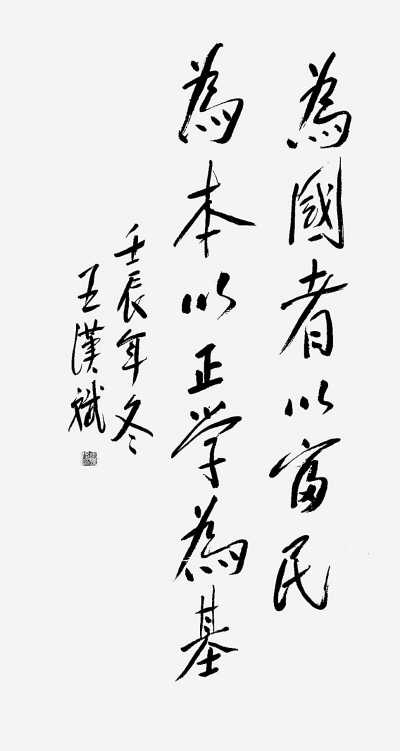 為國者以富民
為本以正学為基
壬辰年冬
王漢斌